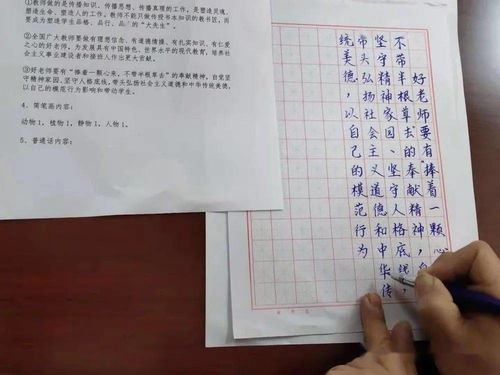 ①教师做的是传播知识、传播思想、传播真理的工作，是塑造灵魂、
塑造生命、塑造人的工作。教师不能只做传授书本知识的教书匠，而
要成为塑造学生品格、品行、品味的“大先生”。
②全国广大教师要做有理想信念、有道德情操、有扎实知识、有仁爱
之心的好老师，为发展具有中国特色、世界水平的现代教育，培养社
会主义事业建设者和接班人作出更大贡献。
③好老师要有“捧着一颗心来，不带半根草去”的奉献精神，自觉坚
守精神家园、坚守人格底线，带头弘扬社会主义道德和中华传统美德，
以自己的模范行为影响和带动学生。
4、简笔画内容：
动物1，植物1，静物1，人物1。
5、普通话内容：
好老师要有“捧着一颗心
不带半根草去”的奉献精神，自
坚守精神家园、坚守人格底线，
带头弘扬社会主义道德和中华传
统美德，以自己的模范行为